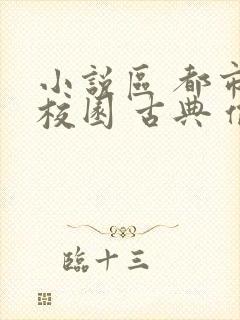 小說區 都市
校園 古典
臨十三